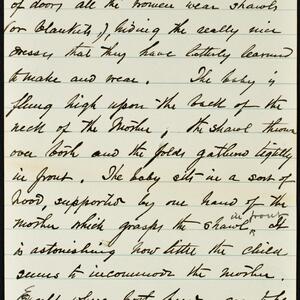 of doors all the women wear shawls
(or blankets), hiding the really nice
dresses that they have latterly learned
to make and wear. The baby is
flung high upon the back of the
neck of the Mother, the shawl thrown
over both and the folds gathered tightly
in front. The baby sits in a sort of
hood, supported by one hand of the
mother which grasps the shawl in front. It
is astonishing how little the child
seems to incommode the mother.